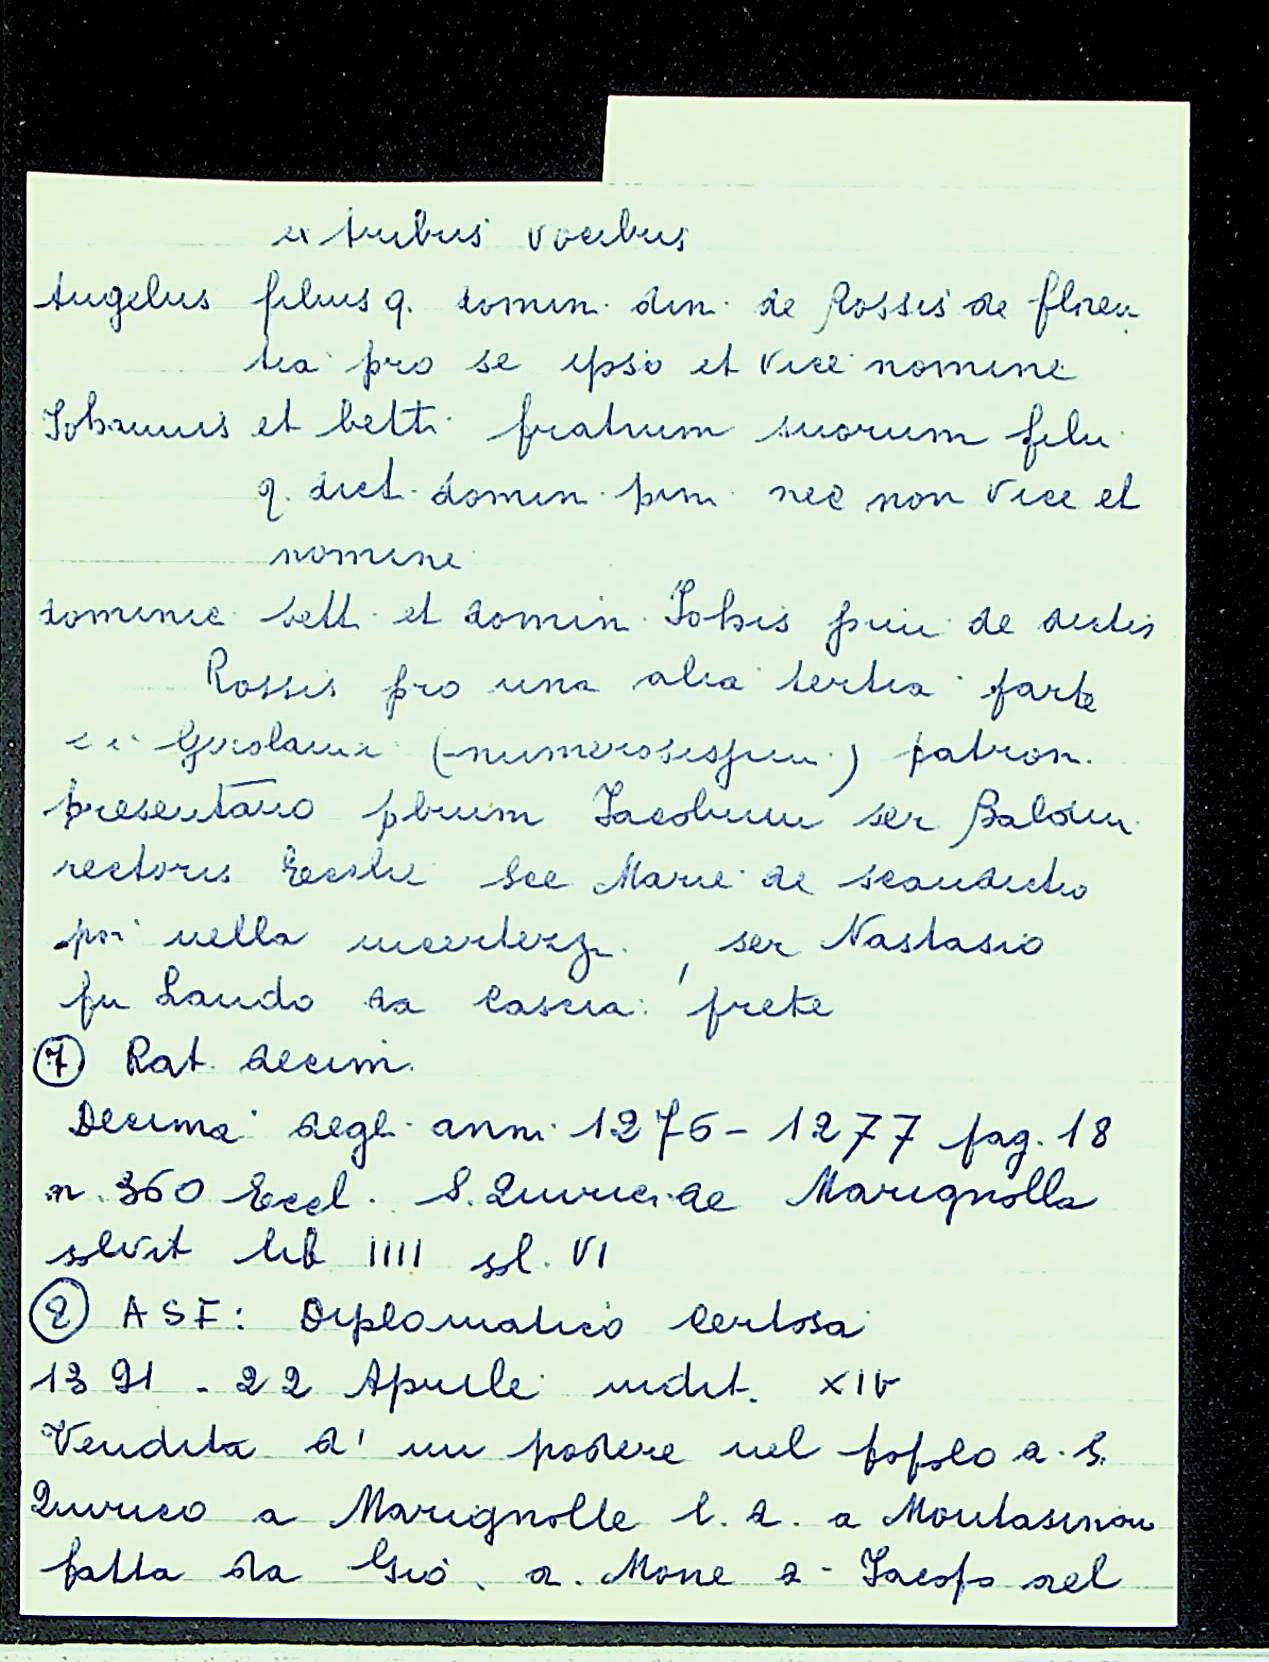 ex tribus vocibus
Angelus filius q. domin. din. de Rossis de floren
tia pro se ipso et vice nomine
Iohannis et betti fratrum suorum filii
q. dict. domin. pini nec non vice et
nomine
dominic bett. et domin. Iohis pini de dictis
Rossis pro una alia tertia parte
e i Girolami (numerosissimi) patron.
presentano pbrum Iacobum ser Baldin.
rectoris Eccslie Sce Marie de scandictio
poi nella incertezz. , ser Nastasio
fu Lando da Cascia: prete
⑦ Rat. decim.
Decima degli anni 1276-1277 pag. 18
n. 360 Eccl. S. Quirici de Marignolla
solvit lib IIII sol. VI
⑧ ASF: Diplomatico Certosa
1391 - 22 Aprile indit. XIV
Vendita d' un podere nel popolo d. S.
Quirico a Marignolle l. d. a Montasinon
fatta da Gio. d. Mone d. Iacopo del